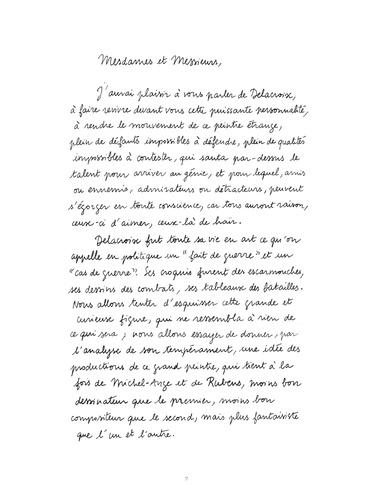 Mesdames et Messieurs,
J'aurai plaisir à vous parler de Delacroix,
à faire revivre devant vous cette puissante personnalité,
à rendre le mouvement de ce peintre étrange,
plein de défauts impossibles à défendre, plein de qualités
impossibles à contester, qui sauta par-dessus le
talent pour arriver au génie, et pour lequel, amis
ou ennemis, admirateurs ou détracteurs, peuvent
s'égorger en toute conscience, car tous auront raison,
ceux-ci d'aimer, ceux-là de haïr.
Delacroix fut toute sa vie en art ce qu'on
appelle en politique un "fait de guerre" et un
"cas de guerre". Ses croquis furent des escarmouches,
ses dessins des combats, ses tableaux des batailles.
Nous allons tenter d'esquisser cette grande et
curieuse figure, qui ne ressembla à rien de
ce qui sera ; nous allons essayer de donner, par
l'analyse de son tempérament, une idée des
productions de ce grand peintre, qui tient à la
fois de Michel-Ange et de Rubens, moins bon
dessinateur que le premier, moins bon
compositeur que le second, mais plus fantaisiste
que l'un et l'autre.
7